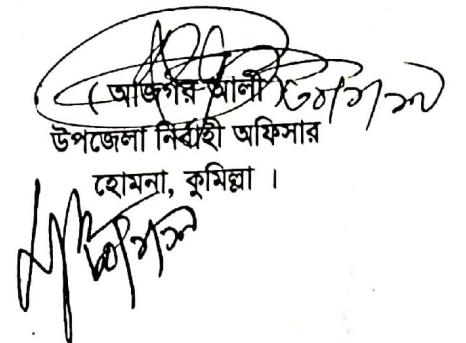 ( আজগর আলী )
উপজেলা নির্বাহী অফিসার
হোমনা, কুমিল্লা ।